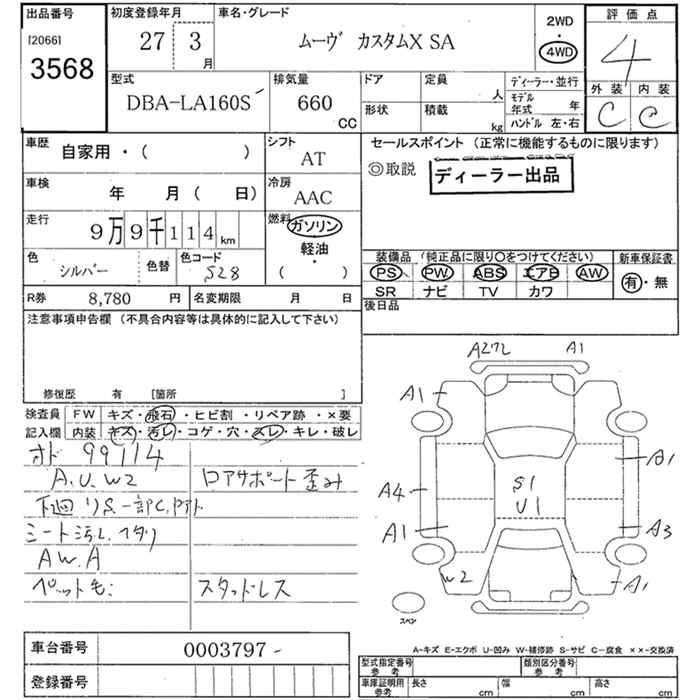 出品番号
[2066]
3568
初度登録年月
27 3
月
車名・グレード
ムーヴ カスタムX SA
2WD
・
4WD
評価点
4
外装 内装
C C
型式
DBA-LA160S
排気量
660
CC
ドア
形状
定員
人
積載
kg
ディーラー・並行
モデル
年式 年
ハンドル 左・右
車歴
自家用・( )
シフト
AT
セールスポイント (正常に機能するものに限ります)
◎取説
ディーラー出品
車検
年 月( 日)
冷房
AAC
走行
9万9千114km
燃料
ガソリン
軽油
・
( )
色
シルバー
色替
色コード
S28
装備品 (純正品に限り○をつけてください)
PS PW ABS エアB AW
SR ナビ TV カワ
新車保証書
有・無
R券 8,780 円
名変期限 月 日
後日品
注意事項申告欄 (不具合内容等は具体的に記入して下さい)
修復歴 有 [箇所 ]
検査員
記入欄
FW キズ・飛石・ヒビ割・リペア跡・×要
内装 キズ・汚レ・コゲ・穴・スレ・キレ・破レ
オド 99114
A.U.W2
ロアサポート歪み
下廻りS.一部C.
シート汚レ.
A W.A
スタッドレス
A2 A1
A1
A1
A4
S1
U1
A1
A3
W2
A1
スペン
A-キズ E-エクボ U-凹み W-補修跡 S-サビ C-腐食 ××-交換済
車台番号 0003797
登録番号
型式指定番号
参考
類別区分番号
参考
車庫証明用
参考
長さ cm
幅 cm
高さ cm